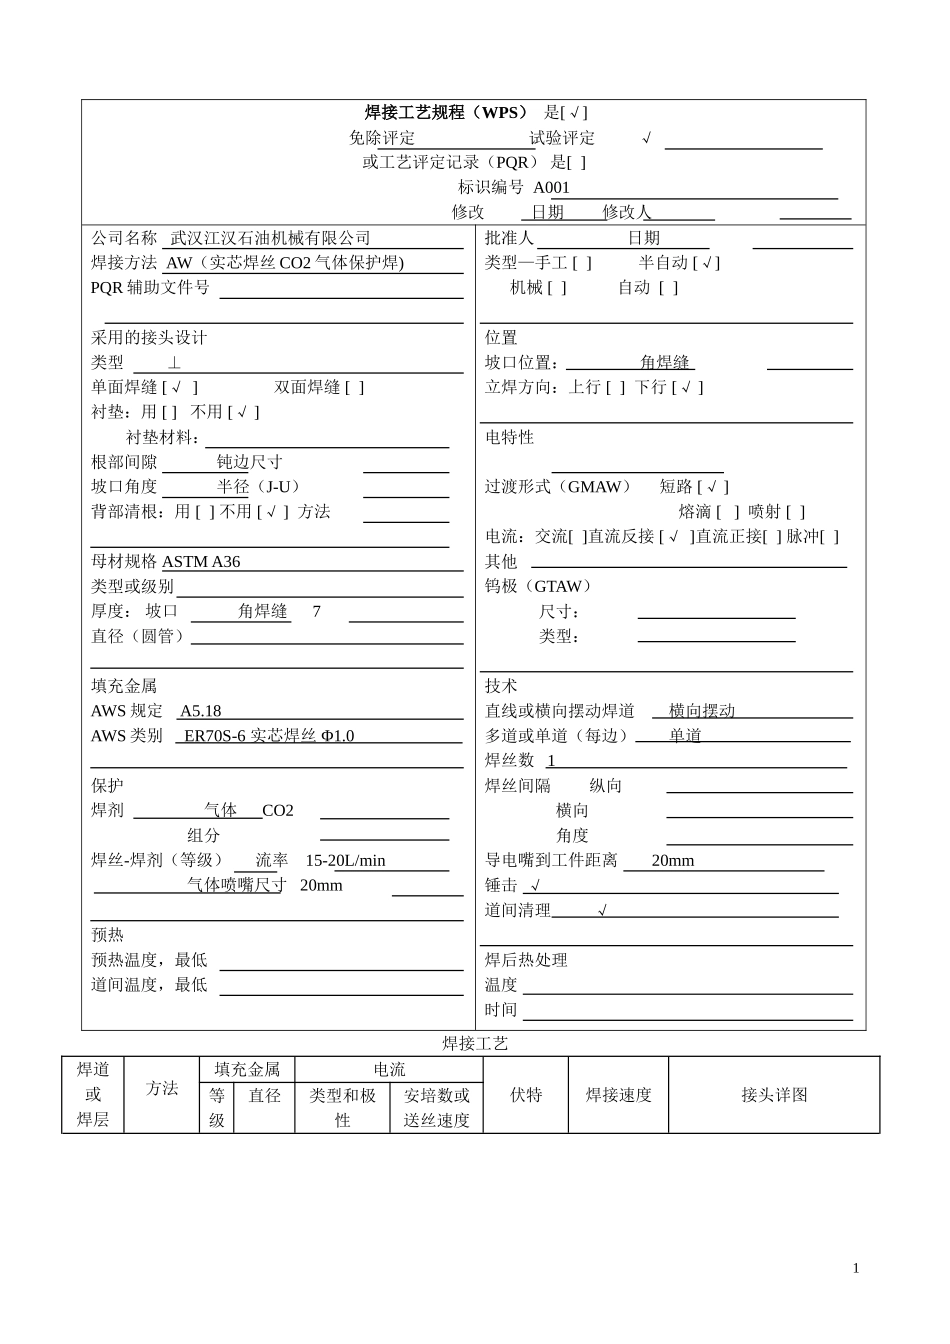 焊接工艺规程（WPS） 是[ √ ]
免除评定 试验评定 √
或工艺评定记录（PQR） 是[ ]
标识编号 A001
修改 日期 修改人
公司名称 武汉江汉石油机械有限公司
焊接方法 AW（实芯焊丝 CO2 气体保护焊)
PQR 辅助文件号
采用的接头设计
类型 ⊥
单面焊缝 [ √ ] 双面焊缝 [ ]
衬垫：用 [ ] 不用 [ √ ]
衬垫材料：
根部间隙 钝边尺寸
坡口角度 半径（J-U）
背部清根：用 [ ] 不用 [ √ ] 方法
母材规格 ASTM A36
类型或级别
厚度： 坡口 角焊缝 7
直径（圆管）
填充金属
AWS 规定 A5.18
AWS 类别 ER70S-6 实芯焊丝 Φ1.0
保护
焊剂 气体 CO2
组分
焊丝-焊剂（等级） 流率 15-20L/min
气体喷嘴尺寸 20mm
预热
预热温度，最低
道间温度，最低
批准人 日期
类型—手工 [ ] 半自动 [ √ ]
机械 [ ] 自动 [ ]
位置
坡口位置： 角焊缝
立焊方向：上行 [ ] 下行 [ √ ]
电特性
过渡形式（GMAW） 短路 [ √ ]
熔滴 [ ] 喷射 [ ]
电流：交流[ ]直流反接 [ √ ]直流正接[ ] 脉冲[ ]
其他
钨极（GTAW）
尺寸：
类型：
技术
直线或横向摆动焊道 横向摆动
多道或单道（每边） 单道
焊丝数 1
焊丝间隔 纵向
横向
角度
导电嘴到工件距离 20mm
锤击 √
道间清理 √
焊后热处理
温度
时间
焊接工艺
焊道
或
焊层
方法
填充金属
等
级
直径
电流
类型和极
性
安培数或
送丝速度
伏特
焊接速度
接头详图
1